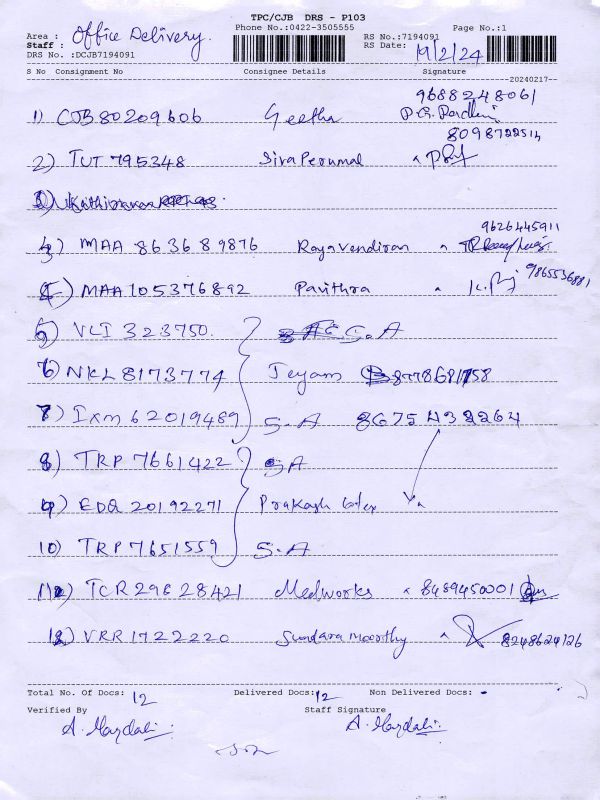 TPC/CJB DRS - P103
Area : Office Delivery. Phone No.:0422-3505555 RS No.:7194091 Page No.:1
Staff : RS Date: 19/2/24
DRS No. :DCJB7194091
S No Consignment No Consignee Details Signature
20240217
9688248061
1) CJB 80209606 Geetha
8098722514
2) TUT 795348 Siva Perumal
9626445911
4) MAA 863689876 Ragavendiran
9865536881
MAA 105376892 Pavithra
5) VLI 323750. S.A
6) NKL 8173774 Jeyam 8778681758
7) IXM 62019489 S.A 8675432264
8) TRP 7661422 SA
9) EDQ 20192271 Prakash latex
10) TRP 7651559 S.A
11) TCR 29628421 Medworks 8489450001
12) VRR 1722220 Sundara moorthy 8248624126
Total No. Of Docs: 12 Delivered Docs: 12 Non Delivered Docs: -
Verified By Staff Signature